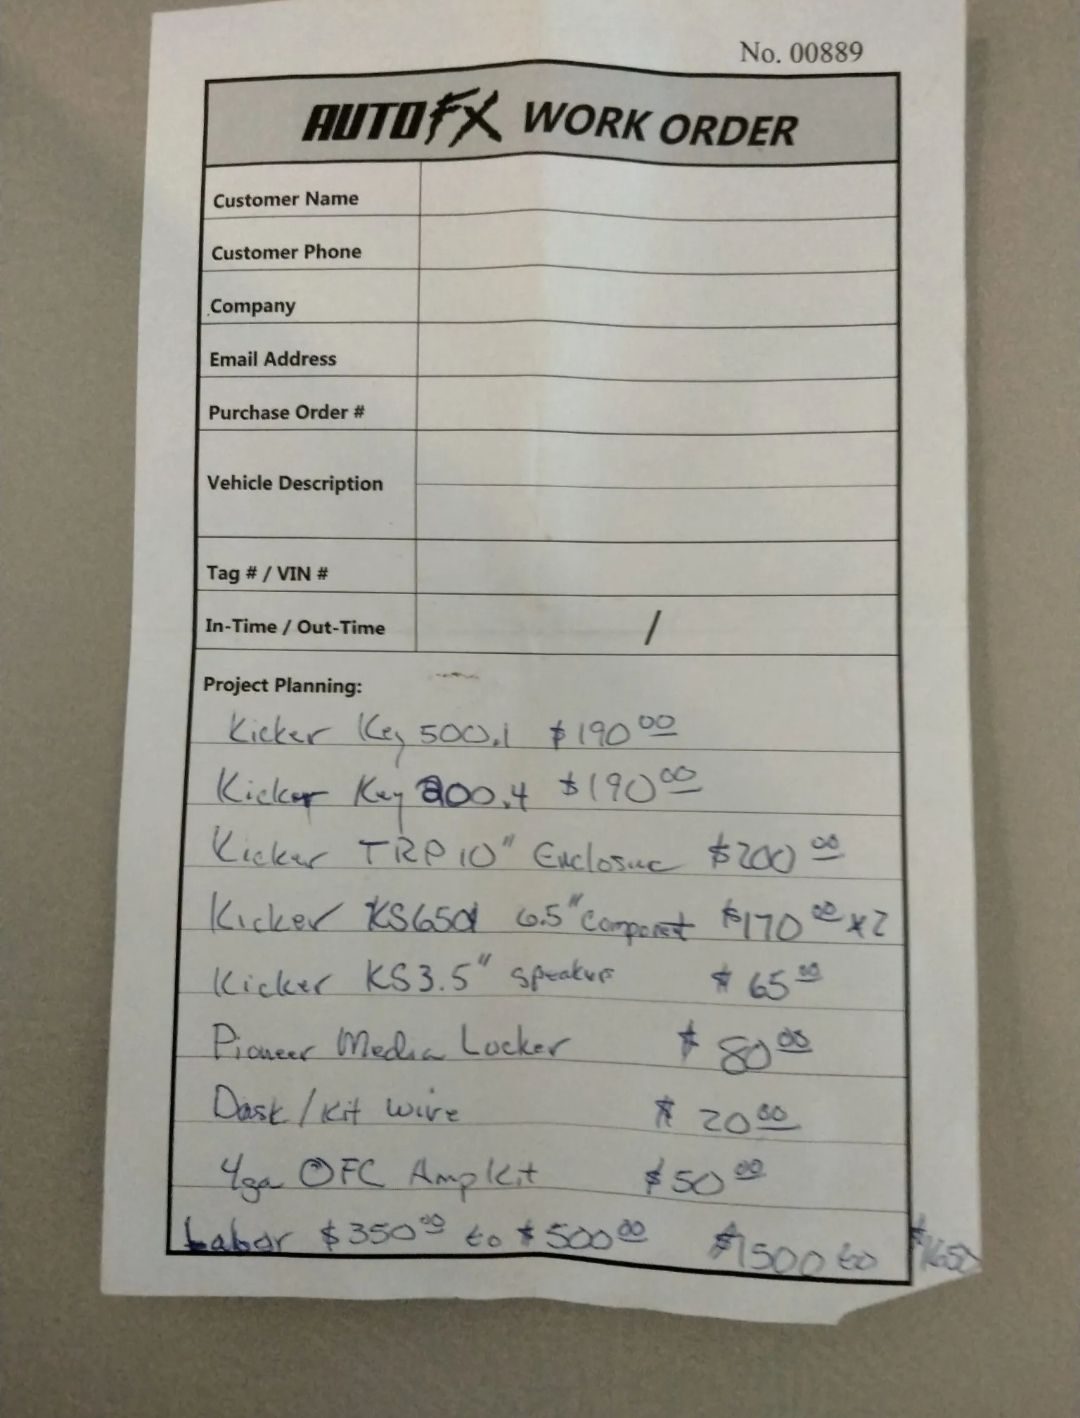 No. 00889
AUTOFX WORK ORDER
Customer Name
Customer Phone
Company
Email Address
Purchase Order #
Vehicle Description
Tag # / VIN #
In-Time / Out-Time /
Project Planning:
Kicker Key 500.1 $190 00
Kicker Key 200.4 $190 00
Kicker TRP 10" Enclosure $200 00
Kicker KS650 6.5" Component $170 00 x2
Kicker KS3.5" speaker $65 00
Pioneer Media Locker $80 00
Dask/Kit wire $20 00
4ga OFC Amp Kit $50 00
Labor $350 00 to $500 00 $1500 to $1650